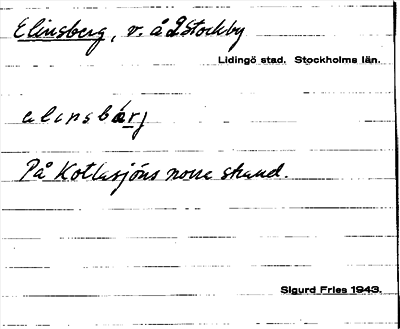 Elinsberg, v. å Stockby
Lidingö stad. Stockholms län.
elinsbárj
På Kottlasjöns norra strand.
Sigurd Fries 1943.